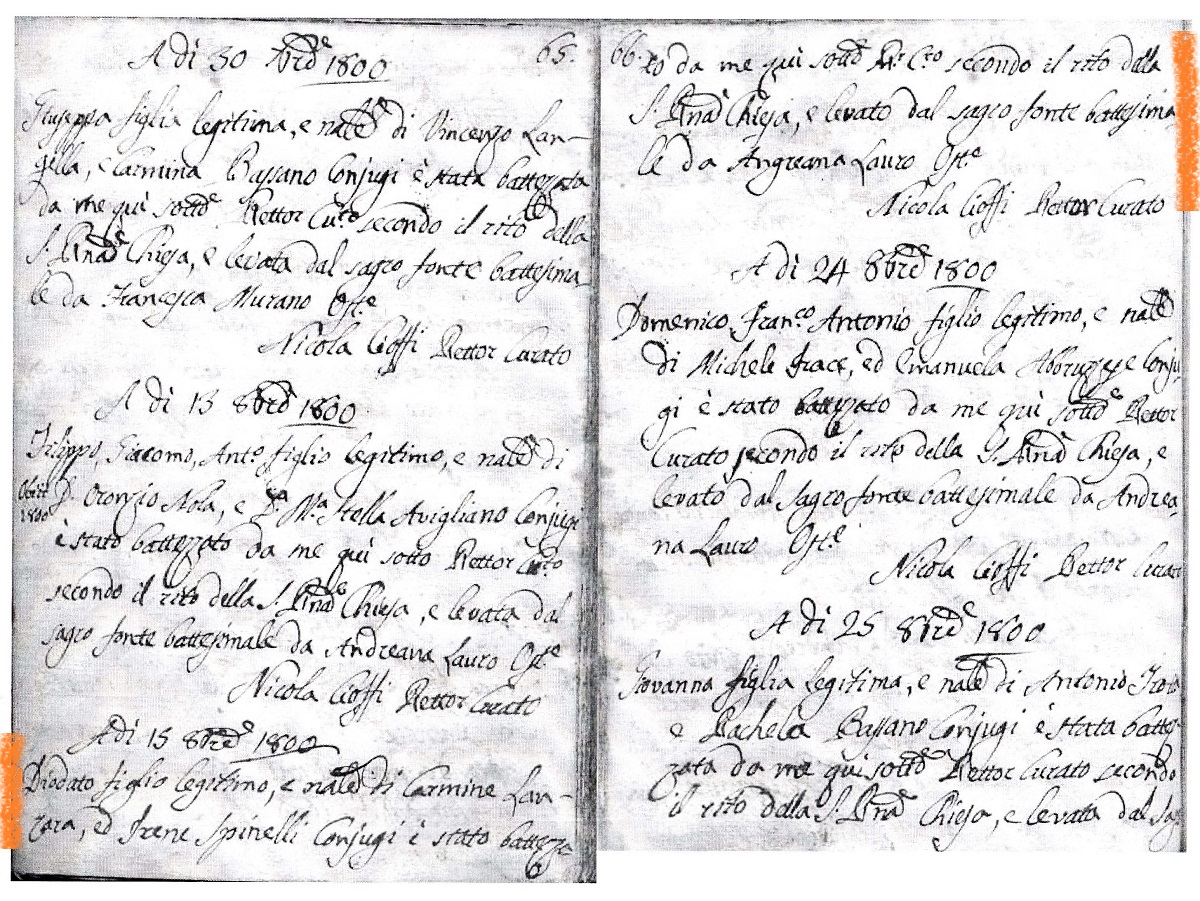 65.
A dì 30 7brė 1800
Giuseppa figlia legitima, e nalė di Vincenzo Lan-
gella, e Carmina Bassano Conjugi è stata battezzata
da me quì sottò Rettor Cuto secondo il rito della
S. Rnà Chiesa, e levata dal sagro fonte battesima
le da Francesca Murano Oste
Nicola Cioffi Rettor Curato
A dì 13 8brė 1800
Filippo, Giacomo, Anto figlio legitimo, e nalė di
Obiit D. Oronzio Nola, e Da Ma Stella Avigliano Conjugi
1800
è stato battezzato da me quì sotto Rettor Cuto
secondo il rito della S. Rnà Chiesa, e levata dal
sagro fonte battesimale da Andreana Lauro Oste
Nicola Cioffi Rettor Curato
A dì 15 8brė 1800
Diodato figlio legitimo, e nalė di Carmine Lan-
zara, ed Irene Spinelli Conjugi è stato battezza
66.
to da me quì sottò Rr Cto secondo il rito della
S. Rnà Chiesa, e levato dal sagro fonte battesima
le da Angreana Lauro Oste
Nicola Cioffi Rettor Curato
A dì 24 8brė 1800
Domenico, Franco Antonio figlio legitimo, e nalė
di Michele Irace, ed Emanuela Abbruzzese Conju
gi è stato battezzato da me quì sottò Rettor
Curato secondo il rito della S. Rnà Chiesa, e
levato dal sagro fonte battesimale da Andrea
na Lauro Oste
Nicola Cioffi Rettor Curato
A dì 25 8brė 1800
Giovanna figlia legitima, e nalė di Antonio
e Rachela Bassano Conjugi è stata battez-
zata da me quì sottò Rettor Curato secondo
il rito della S. Rnà Chiesa, e levata dal Sag